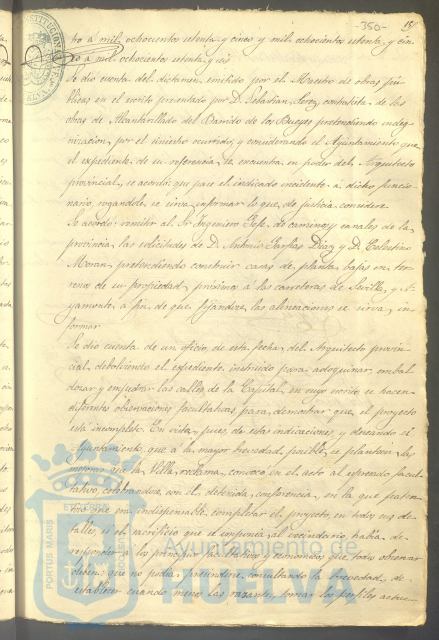 -350-
15
tro a mil ochocientos setenta y cinco y mil ochocientos setenta y cin-
co a mil ochocientos setenta y seis
Se dio cuenta del dictamen emitido por el Maestro de obras pú-
blicas en el escrito presentado por D. Sebastian contratista de las
obras de Alcantarillado del Barrito de los Bueyes pretendiendo indem-
nizacion por el siniestro ocurrido, y considerando el Ayuntamiento que
el espediente de su referencia se encuentra en poder del Arquitecto
provincial, se acordó: que pase el indicado incidente a dicho funcio-
nario, rogandole se sirva informar lo que de justicia considere
Se acordó: remitir al Sr Ingeniero Gefe de caminos y canales de la
provincia las solicitudes de D. Antonio Diaz y D. Celestino
Moran pretendiendo construir casas de planta baja en ter-
renos de su propiedad proximos a las carreteras de Sevilla y A-
yamonte, a fin de que fijandose las alineaciones se sirva in-
formar
Se dio cuenta de un oficio de esta fecha del Arquitecto provin-
cial debolviendo el espediente instruido para adoquinar, embal-
dozar y empedrar las calles de la Capital, en cuyo escrito se hacen
diferentes observaciones facultativas para demostrar que el proyecto
está incompleto. En vista pues de estas indicaciones y deseando el
Ayuntamiento que a la mayor brevedad posible se planteen las
mejoras que la Villa reclama, convocó en el acto al espresado facul-
tativo, celebrandose con él detenida conferencia, en la que
que era indispensable completar el proyecto en todos sus de-
talles, si el sacrificio que se imponia al vecindario habia de
responder a los principios facultativos y economicos que todos observar
deben: que no podia prescindirse, consultando la brevedad, de
establecer cuando menos las rasantes, tomar los perfiles
PORTUS MARIS
Ayuntamiento de
HUELVA